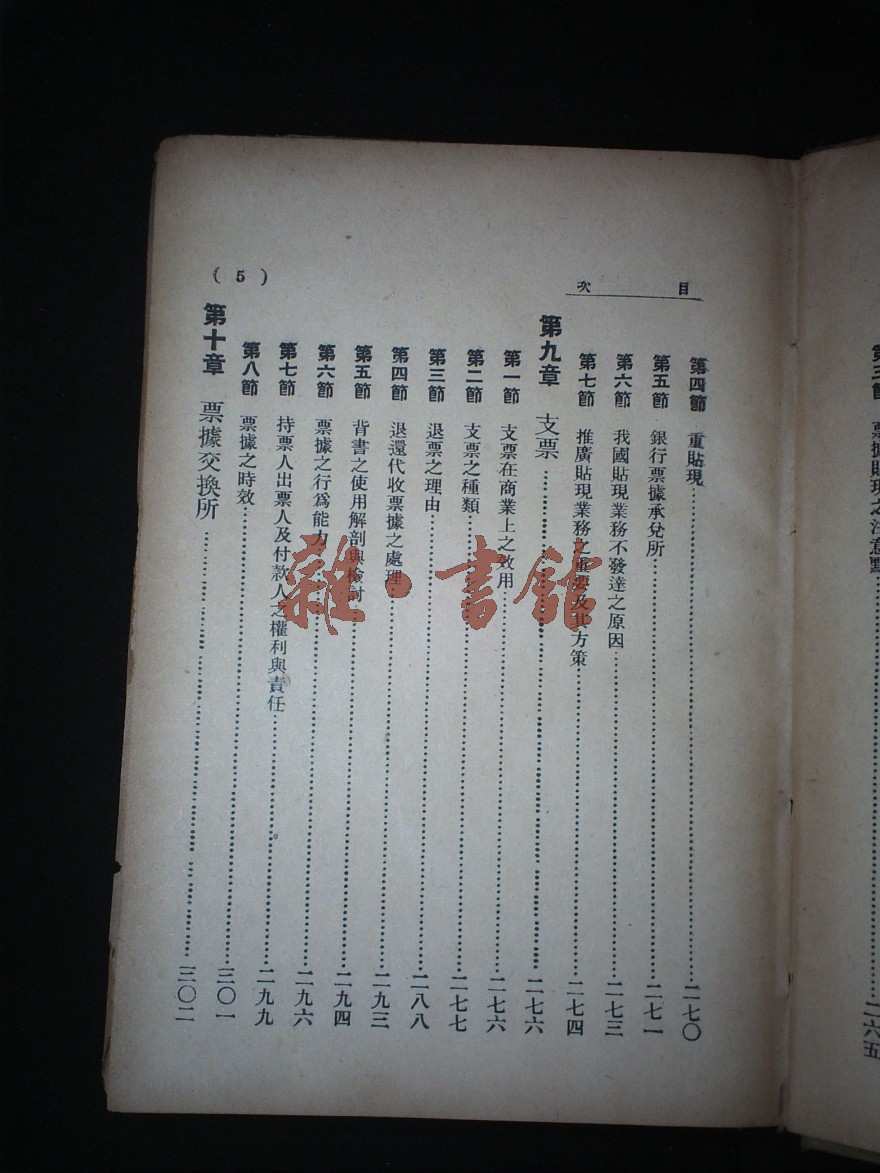 第三節 票據貼現之注意點……二六五
目 次
第四節 重貼現……二七〇
第五節 銀行票據承兌所……二七一
第六節 我國貼現業務不發達之原因……二七三
第七節 推廣貼現業務之重要及其方策……二七四
第九章 支票……二七六
第一節 支票在商業上之效用……二七六
第二節 支票之種類……二七七
第三節 退票之理由……二八八
第四節 退還代收票據之處理……二九三
第五節 背書之使用解剖與檢討……二九四
第六節 票據之行爲能力……二九六
第七節 持票人出票人及付款人之權利與責任……二九九
第八節 票據之時效……三〇一
第十章 票據交換所……三〇二
( 5 )
雜·書館